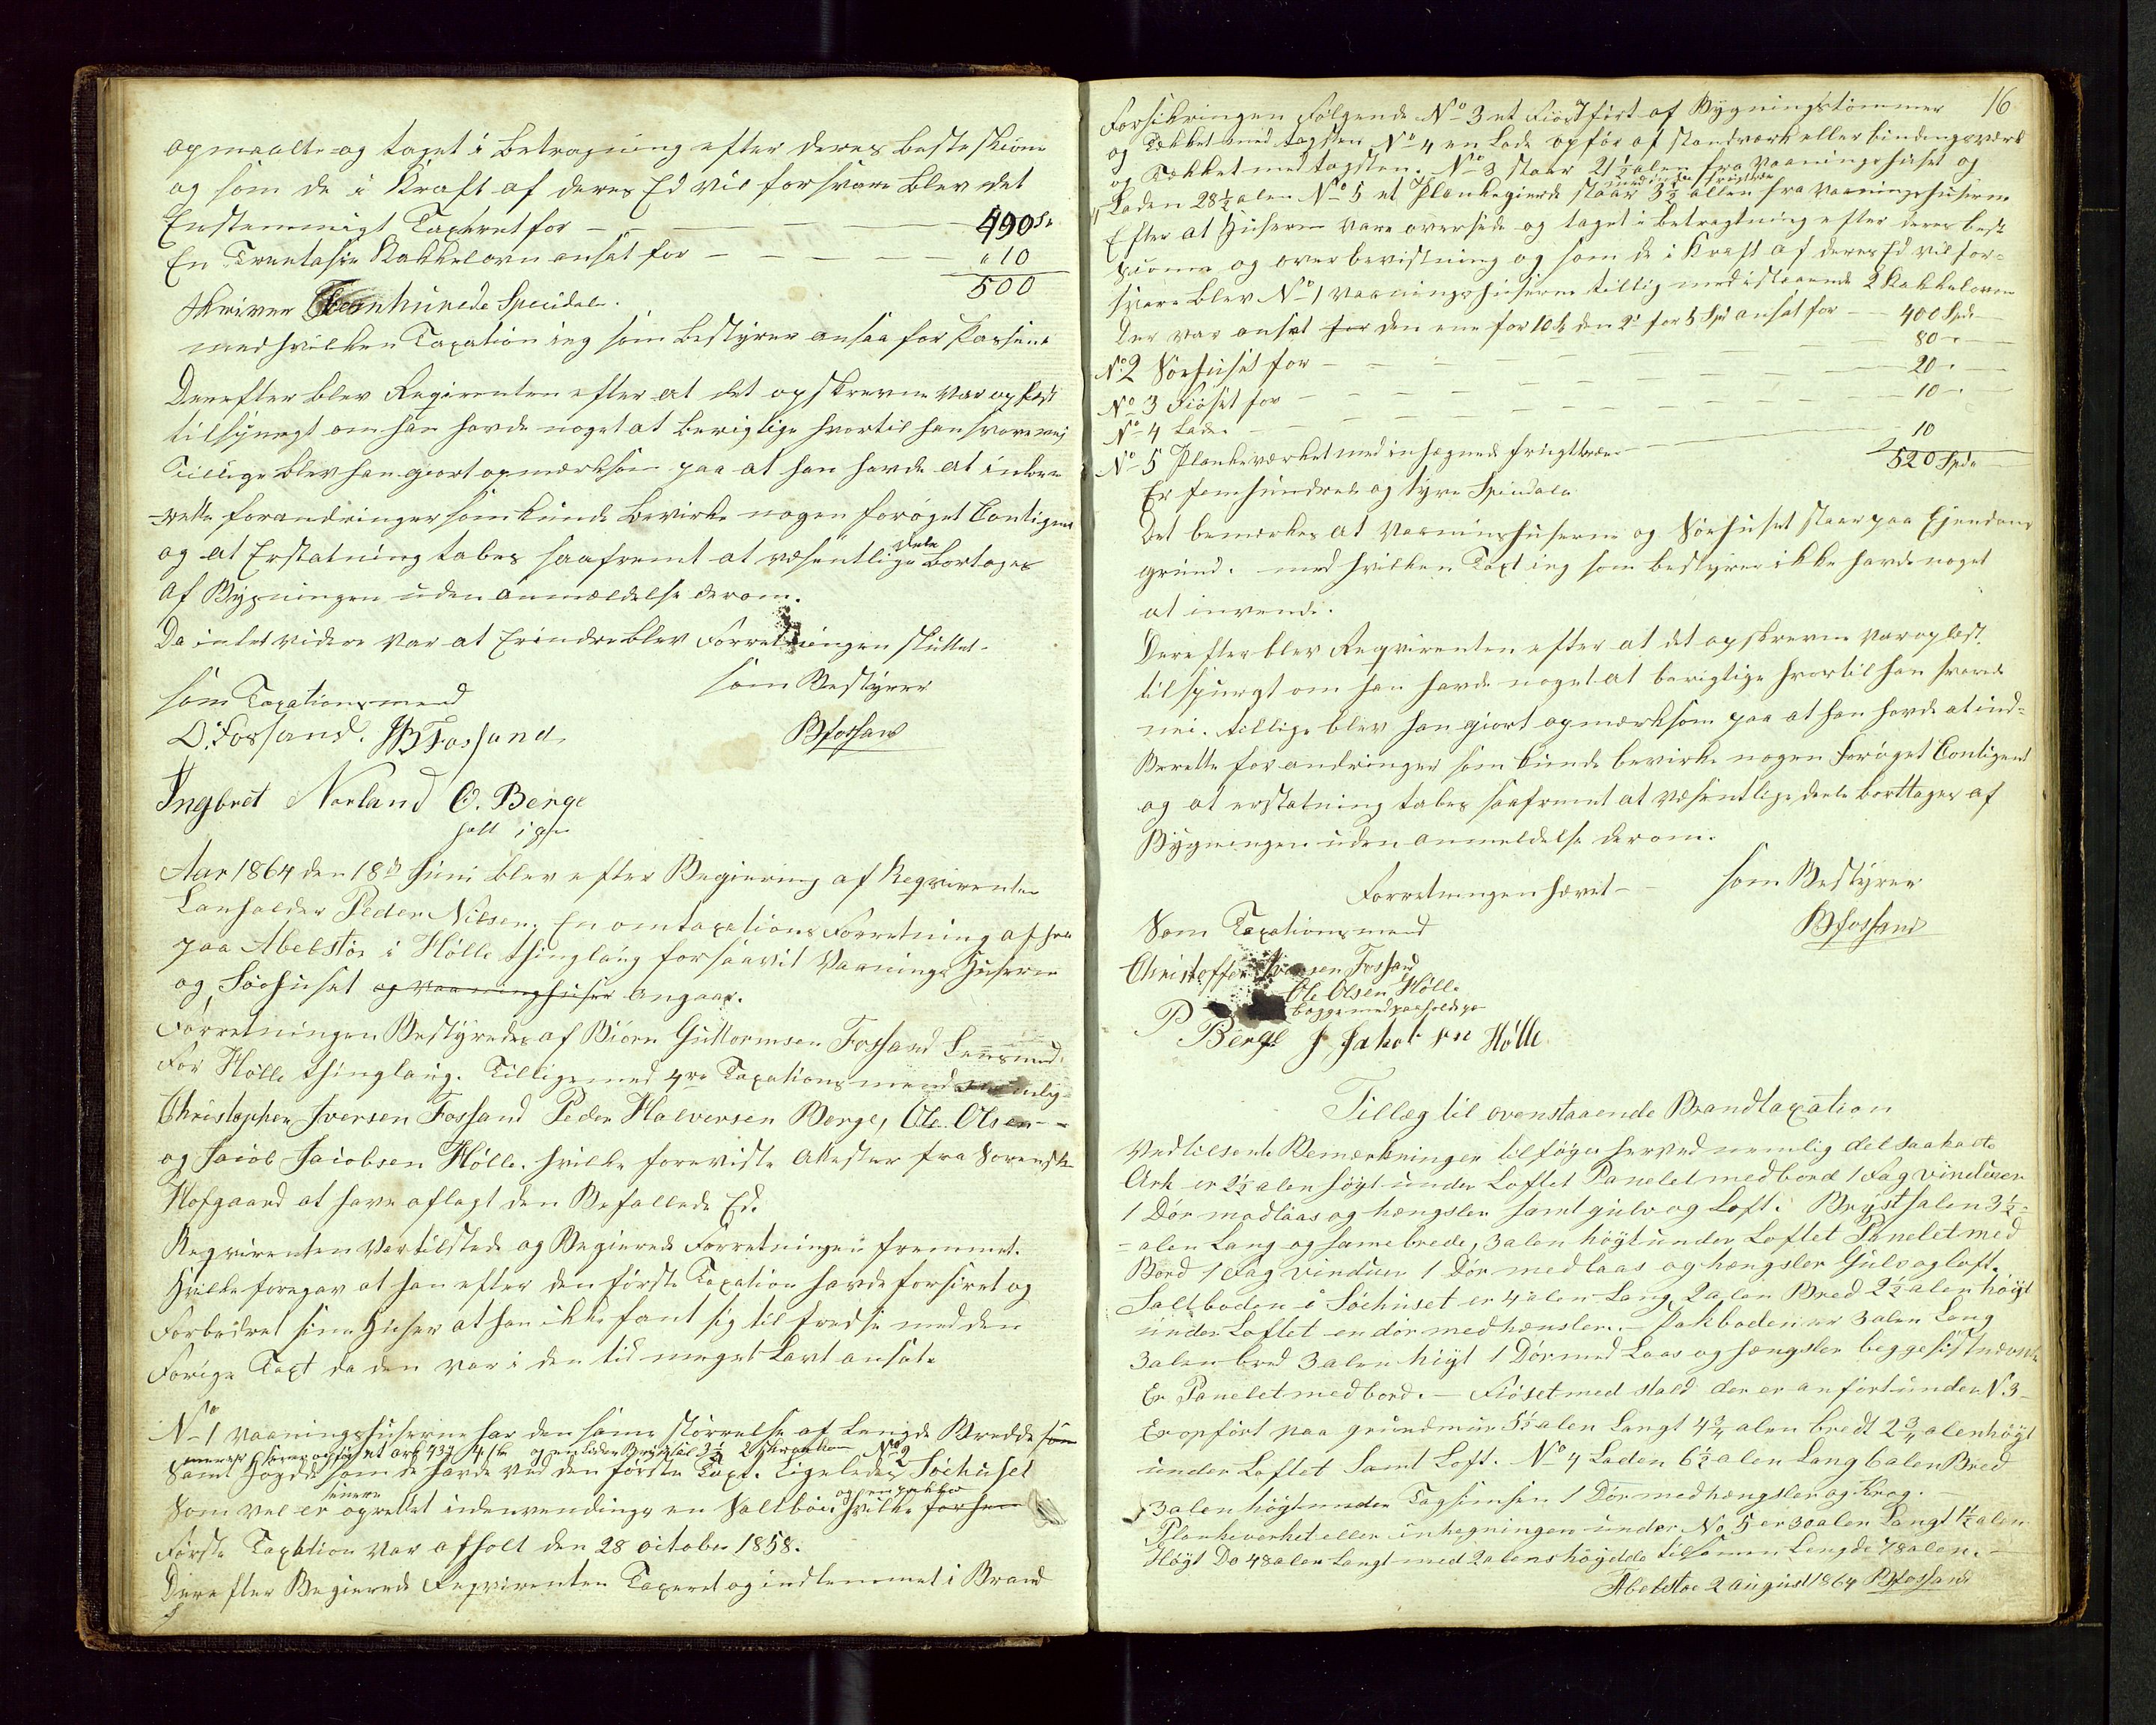 opmaalte og taget i Betragning efter deres beste skiøn
og som de i Kraft af deres Ed vil forsvare blev det
Enstemmigt Taxeret for — — — — 490 S
En Treetasie Kakkelovn ansat for — — — — " 10
500
skriver Femhunrede Specidaler.
med hvilken Taxation ieg som Bestyrer ansaa for Passende
Derefter blev Reqvirenten efter at det opskrevne var oplæst
tilspurgt om han havde noget at berigtige hvortil han svarede nei
Tillige blev han giort opmærksom paa at han havde at inbe-
rette forandringer som kunde bevirke nogen forøget Contigent
og at Erstatning tabes saafremt at væsentlige Dele bortages
af Bygningen uden anmældelse derom.
Da intet videre var at Erindre blev Forretningen sluttet.
som Taxationsmænd
som Bestyrer
O. Fossand. JB Fossand
BFossand
Ingbret Norland O. Berge
holt i pen
Aar 1864 den 18de Juni blev efter Begiering af Reqvirenten
Lanhalder Peder Nilsen. En omtaxations Forretning afholdt
paa Abelstøe i Hølle thinglaug forsaavit Vaanings Huserne
og Søehuset og vaaninghuser angaar.
Forretningen Bestyredes af Biørn Guttormsen Fossand Lensmand
for Hølle thinglaug. Tilligemed 4re Taxationsmænd nemlig
Christopher Iversen Fossand Peder Halversen Berge, Ole Olsen -
og Jacob Jacobsen Hølle. hvilke foreviste Attester fra Sorenskr
Hofgaard at have aflagt den Befallede Ed.
Reqvirenten var tilstede og Begierede Forretningen fremmet.
Hvilke foregav at han efter den første Taxation havde forsiret og
Forbedret sine Huser at han ikke fant sig tilfreds med den
Forige Taxt da den var i den tid meget Lavt ansat.
No 1 vaaningshuserne har den same størrelse af Lengde Bredde som
samt Høgde som de havde ved den første Taxt. Ligeledes No 2 Søehuset
som vel er oprettet indenvendings en Saltboe og en pakboe hvilke
første Taxtation var afholt den 28 october 1858.
Derefter Begierede Reqvirenten Taxeret og indlemmet i Brand
16
Forsikringen Følgende No 3 et Fiøs opført af Bygningstømmer
og Tækket med tagsten No 4 en Lade opført af standværk eller bindingsværk
og Tækket med tagsten. No 3 staar 21½ alen fra Vaaningshuset og
Laden 28½ alen No 5 et Plankegierde staar 3½ allen fra vaaningshuserne
Efter at Huserne vare oversede og taget i betragtning efter deres beste
skiønne og overbevistning og som de i Kraft af deres Ed vil for-
svare blev No 1 vaaningshuserne tillig med istaaende 2 Kakkelovne
der var ansat for den ene for 10 S den 2de for 5 Spd ansat for — 400 Spd
No 2 Søehuset for — — — 80 "
No 3 Fiøset for — — — 20 "
No 4 Laden — — — 10 "
No 5 Plankeværket med inhegnede frugttræer — 10
520 Spd
Er femhundrede og tyve Specidaler
Det bemærkes at Vaaninshuserne og Søehuset staar paa Ejendoms
grund. med hvilken Taxt ieg som bestyrer ikke havde noget
at invende.
Derefter blev Reqvirenten efter at det opskrevne var oplæst
tilspurgt om han havde noget at berigtige hvortil han svarede
nei. tillige blev han giort opmærksom paa at han havde at ind-
Berette forandringer som kunde bevirke nogen Forøget Contigent
og at erstatning tabes saafremt at væsentlige deele borttages af
Bygningen uden anmeldelse derom.
Forretningen hævet —
som Bestyrer
Som Taxationsmænd
BFossand
Christoffer Iversen Fossand
Ole Olsen Hølle
begge med paaholden pen
P Berge J Jakobsen Hølle
Tillæg til ovenstaaende Brandtaxation
Ved tilsente Bemærkninger tilføyes herved nemlig det saakalte
Ark er 2½ alen høyt under Loftet Panelet med bord 1 Fag vinduer
1 Dør med laas og hængsler samt gulv og Loft. Brystsalen 3½ -
- alen Lang og same brede, 3 alen høyt under Loftet Panelet med
Bord 1 Fag vinduer 1 Dør med laas og hængsler Gulv og loft.
Saltboden i Søehuset er 4 alen Lang 2 alen Bred 2½ alen høyt
under Loftet en dør med hænsler. — Pakboden er 3 alen Lang
3 alen bred 3 alen høyt 1 Dør med Laas og hængsler begge sistnævnte
Er Panelet med bord. — Fiøset med stald der er anført under N. 3 -
Er opført paa grundmur 5½ alen Langt 4¾ alen bredt 2¾ alen høyt
under Loftet samt Loft. No 4 Laden 6½ alen Lang 6 alen Bred
3 alen høyt under Tagsimsen 1 Dør med hængsler og Krog. —
Plankeverket eller inhegningen under No 5 er 30 alen Langt 1½ alen
Høyt Do 48 alen Langt med 2 alens høyde tilsamen Lengde 78 alen. —
Abelstøe 2 August 1864 BFossand